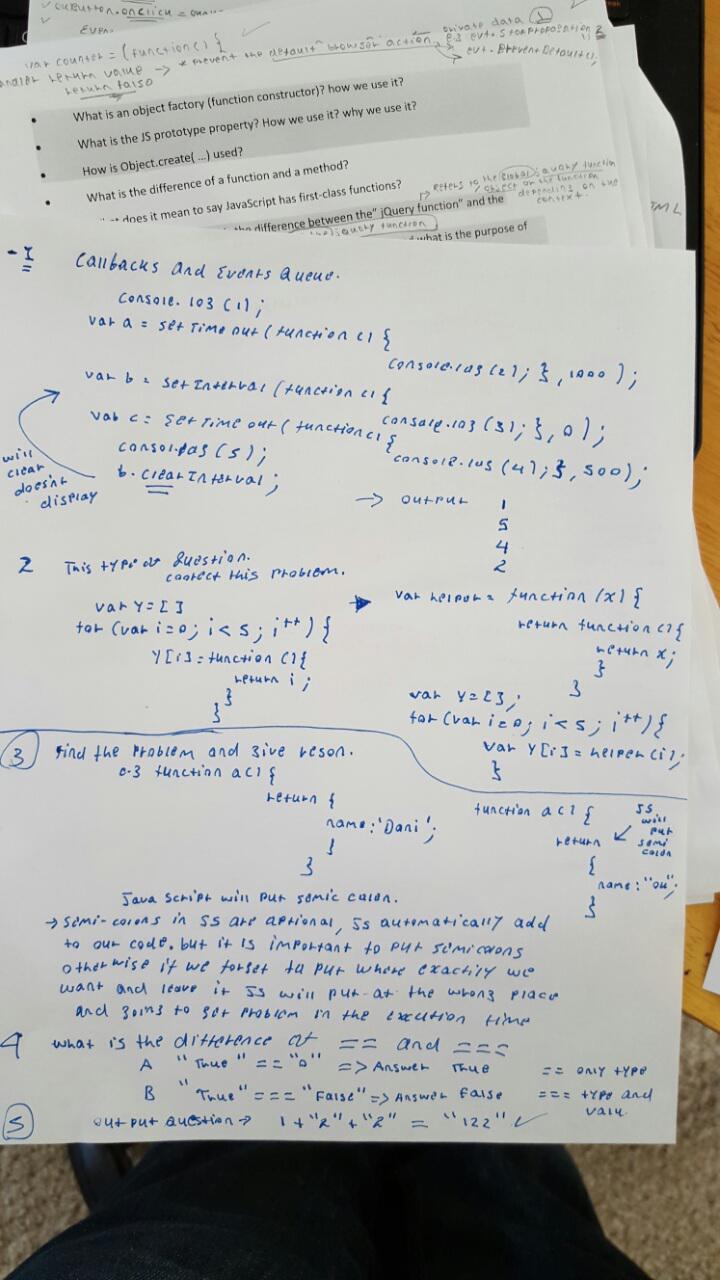 var counter = (function() {
private data
e.g evt.stopPropagation
2
return value → * prevent the default browser action,
evt. PreventDefault();
return false
• What is an object factory (function constructor)? how we use it?
• What is the JS prototype property? How we use it? why we use it?
• How is Object.create( …) used?
• What is the difference of a function and a method?
does it mean to say JavaScript has first-class functions?
Refers to the Global jQuery function
object or the function
depending on the
context.
difference between the" jQuery function" and the
jQuery function
what is the purpose of
- I Callbacks and Events Queue.
Console.log (1);
var a = setTimeout (function () {
console.log (2); }, 1000 );
var b = SetInterval (function () {
console.log (3); }, 0 );
var c = SetTimeout ( function() {
console.log (4); }, 500);
consol.log (5);
b. clearInterval ;
will
clear
doesn't
display
→ output 1
5
4
2
2 This type of Question.
correct this problem.
var Y = [ ]
for (var i=0; i < 5; i++) {
Y [i] = function () {
return i ;
}
}
var helper = function (x) {
return function () {
return x;
}
}
var Y = [ ];
for (var i=0; i < 5; i++) {
var Y [i] = helper (i);
}
3 Find the Problem and give reson.
0-3 function a() {
return {
name: 'Dani';
}
}
function a() {
return
{
name: "ou";
}
JS
will
put
semi
colon
Java Script will put semic colon.
→ semi-colons in JS are optional, JS automatically add
to our code. but it is important to put semicolons
otherwise if we forget to put where exactly we
want and leave it JS will put at the wrong place
and going to get problem in the excution time
4 What is the difference of == and ===
A "True" == "0" => Answer True == only type
B "True" === "False" => Answer False === type and
valu.
5 output question → 1 + "2" + "2" = "122" ✓